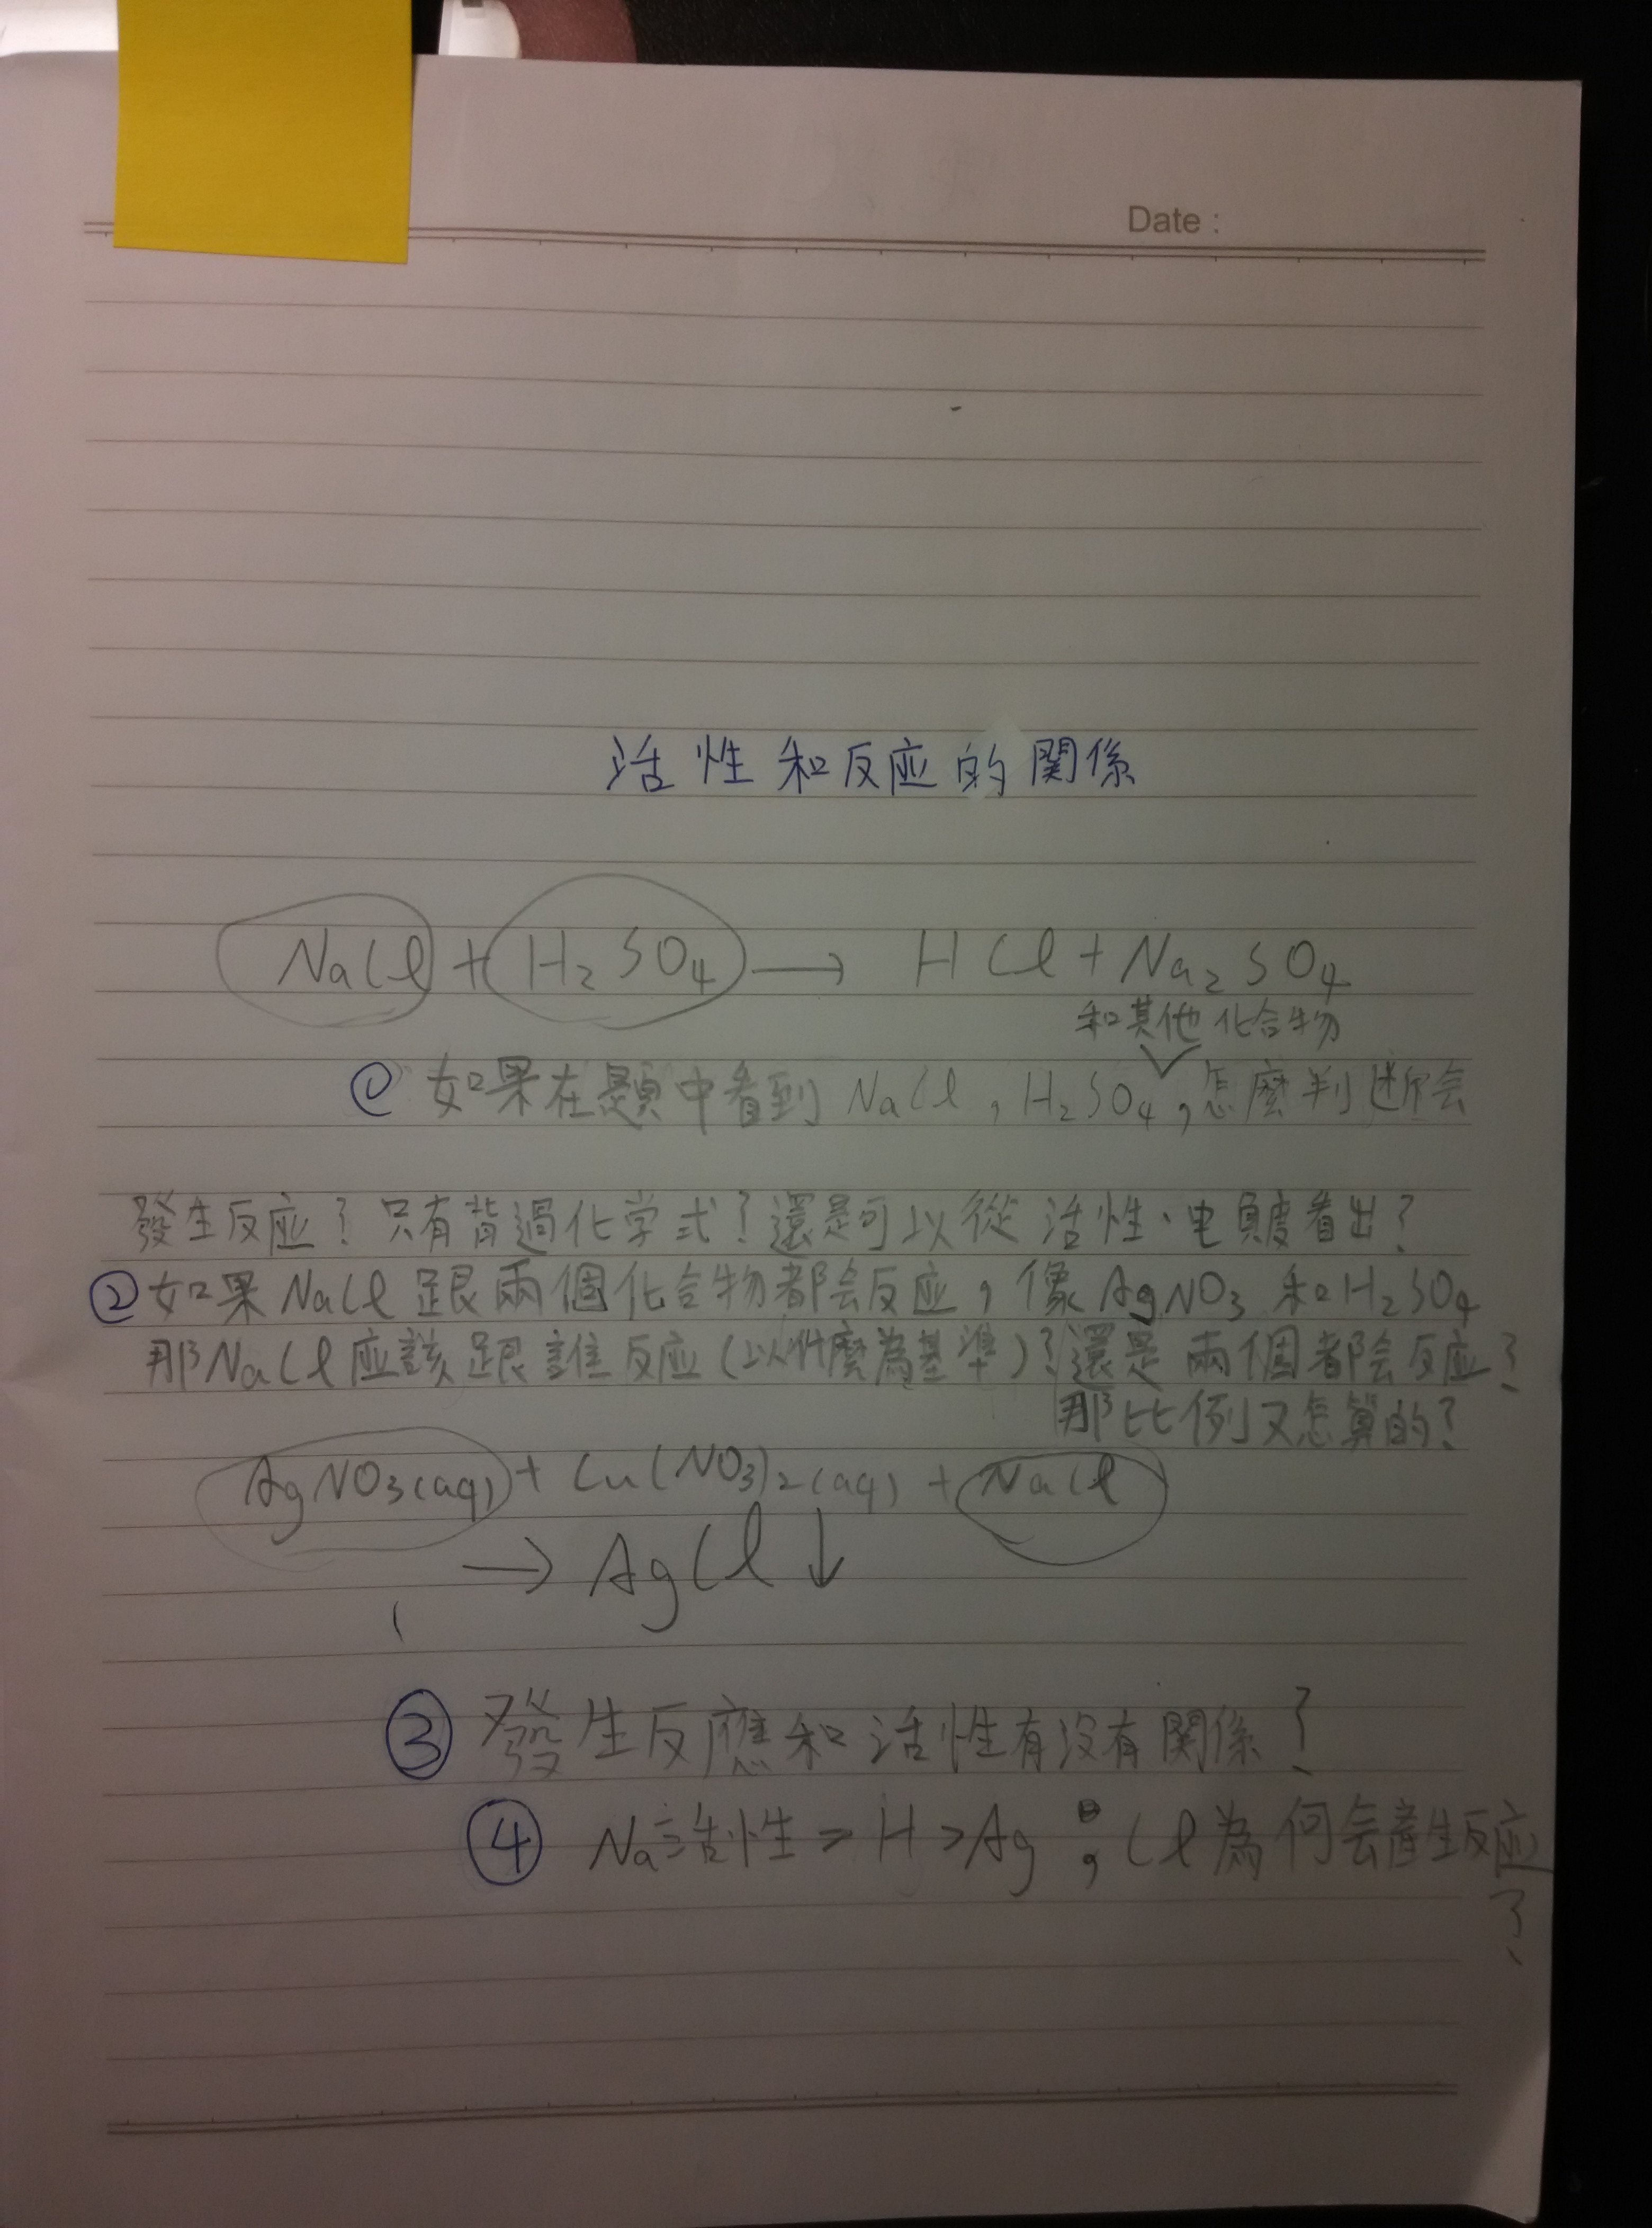 Date :
活性和反应的關係
NaCl + H₂SO₄ → HCl + Na₂SO₄
和其他化合物
① 如果在題中看到 NaCl , H₂SO₄ , 怎麼判断会
發生反应？只有背過化学式？還是可以從活性、电負度看出？
② 如果 NaCl 跟兩個化合物都会反应，像 AgNO₃ 和 H₂SO₄
那 NaCl 应該跟誰反应 (以什麼為基準)？還是兩個都会反应？
那比例又怎算的？
AgNO₃(aq) + Cu(NO₃)₂(aq) + NaCl
→ AgCl ↓
③ 發生反應和活性有沒有關係？
④ Na活性 > H > Ag ; Cl 為何会產生反应
？